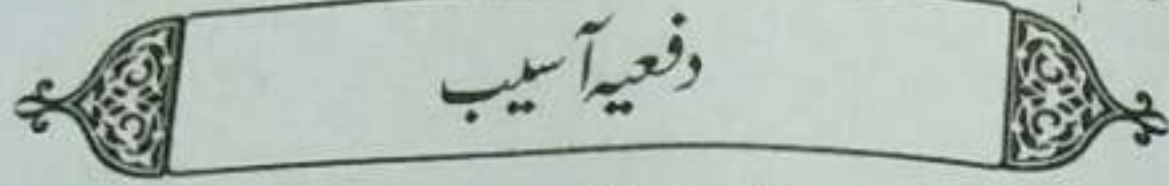 دفعیہ آسیب